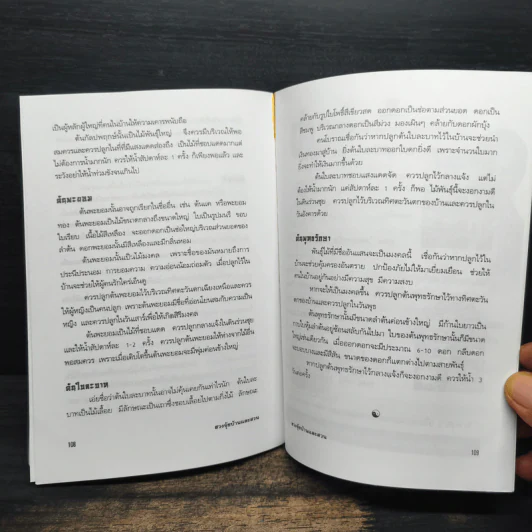 เป็นผู้หลักผู้ใหญ่ที่คนในบ้านให้ความเคารพนับถือ
ต้นกัลปพฤกษ์นั้นเป็นไม้พันธุ์ใหญ่ จึงควรมีบริเวณให้พอ
สมควรและควรปลูกในที่ที่มีแสงแดดส่องถึง เป็นไม้ที่ชอบแดดมากแต่
ไม่ต้องการน้ำมากนัก ควรให้น้ำสัปดาห์ละ 1 ครั้ง ก็เพียงพอแล้ว และ
ระวังอย่าให้น้ำท่วมขังจนเกินไป
ต้นพะยอม
ต้นพะยอมนั้นอาจถูกเรียกในชื่ออื่น เช่น ต้นแดก หรือพะยอม
ทอง ต้นพะยอมเป็นไม้ขนาดกลางถึงขนาดใหญ่ ใบเป็นรูปมนรี ขอบ
ใบเรียบ เนื้อไม้สีเหลือง จะออกดอกเป็นช่อใหญ่บริเวณส่วนยอดของ
ลำต้น ดอกพะยอมนั้นมีสีเหลืองและมีกลิ่นหอม
ต้นพะยอมนั้นเป็นไม้มงคล เพราะชื่อของมันหมายถึงการ
ประนีประนอม การยอมความ ความอ่อนน้อมถ่อมตัว เมื่อปลูกไว้ใน
บ้านจะช่วยให้ผู้คนรักใคร่เอ็นดู
ควรปลูกต้นพะยอมไว้บริเวณทิศตะวันตกเฉียงเหนือและควร
ให้ผู้หญิงเป็นคนปลูก เพราะต้นพะยอมมีชื่ออ่อนโยนสมกับความเป็น
หญิง และควรปลูกในวันเสาร์เพื่อให้เกิดสิริมงคล
ต้นพะยอมเป็นไม้ที่ชอบแดด ควรปลูกกลางแจ้งในดินร่วนซุย
และให้น้ำสัปดาห์ละ 1-2 ครั้ง ควรปลูกต้นพะยอมให้ห่างจากไม้อื่น
พอสมควร เพราะเมื่อเติบโตขึ้นต้นพะยอมจะมีพุ่มค่อนข้างใหญ่
ต้นใบละบาท
เอ่ยชื่อว่าต้นใบละบาทนั้นอาจไม่คุ้นเคยกันเท่าไรนัก ต้นใบละ
บาทเป็นไม้เลื้อย มีลักษณะเป็นเถาซึ่งชอบเลื้อยไปตามกิ่งไม้ ลักษณะ
108
ฮวงจุ้ยบ้านและสวน
คล้ายกับรูปใบโพธิ์สีเขียวสด ออกดอกเป็นช่อตามส่วนยอด ดอกเป็น
สีชมพู บริเวณกลางดอกเป็นสีม่วง มองเผินๆ คล้ายกับดอกผักบุ้ง
คนโบราณเชื่อกันว่าหากปลูกต้นใบละบาทไว้ในบ้านจะช่วยนำ
เงินทองมาสู่บ้าน ยิ่งต้นใบละบาทออกใบดกยิ่งดี เพราะจำนวนใบมาก
ยิ่งจะทำให้เงินมากขึ้นด้วย
ต้นใบละบาทชอบแสงแดดจัด ควรปลูกไว้กลางแจ้ง แต่ไม่
ต้องให้น้ำมากนัก แค่สัปดาห์ละ 1 ครั้ง ก็พอ ไม้พันธุ์นี้จะงอกงามดี
ในดินร่วนซุย ควรปลูกไว้บริเวณทิศตะวันตกของบ้านและควรปลูกใน
วันอังคารด้วย
ต้นพุทธรักษา
พันธุ์ไม้ที่มีชื่ออันแสนจะเป็นมงคลนี้ เชื่อกันว่าหากปลูกไว้ใน
บ้านจะช่วยคุ้มครองอันตราย ปกป้องภัยไม่ให้มาเยี่ยมเยือน ช่วยให้
คนในบ้านอยู่กันอย่างมีความสุข มีความสงบ
หากจะให้เป็นมงคลขึ้น ควรปลูกต้นพุทธรักษาไว้ทางทิศตะวัน
ตกของบ้านและควรปลูกในวันพุธ
ต้นพุทธรักษานั้นมีขนาดลำต้นค่อนข้างใหญ่ มีก้านใบยาวเป็น
กาบใบหุ้มลำต้นอยู่ซ้อนสลับกันไปมา ใบของต้นพุทธรักษานั้นก็มีขนาด
ใหญ่เช่นเดียวกัน เมื่อออกดอกจะมีประมาณ 6-10 ดอก กลีบดอก
บอบบางและมีสีสัน ขนาดของดอกก็แตกต่างไปตามสายพันธุ์
หากปลูกต้นพุทธรักษาไว้กลางแจ้งก็จะงอกงามดี ควรให้น้ำ 3
วันต่อครั้ง
ฮวงจุ้ยบ้านและสวน
109